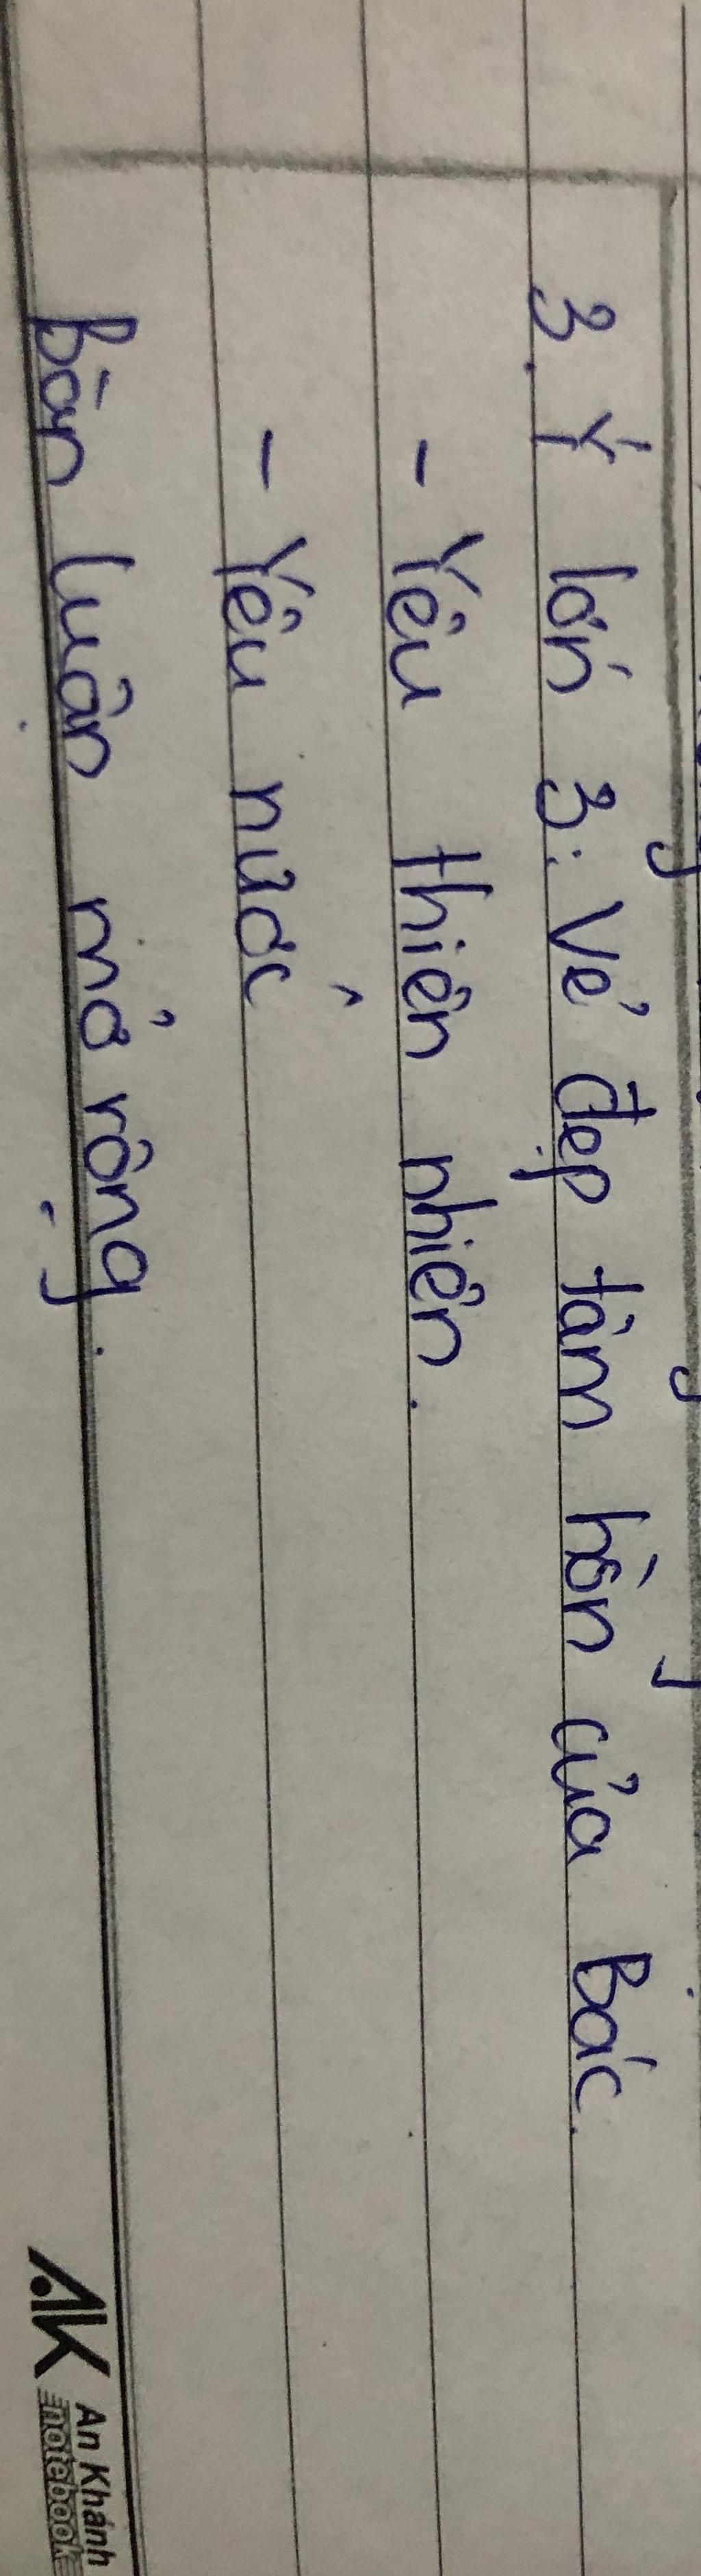 3. Ý lớn 3: Vẻ đẹp tâm hồn của Bác.
- Yêu thiên nhiên.
- Yêu nước
Bàn luận mở rộng.
AK An Khánh
notebook